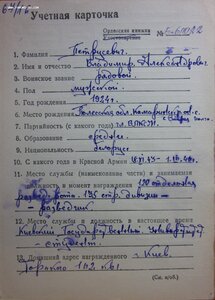 Учетная карточка
Орденская книжка
Удостоверение №
1. Фамилия Петрусевич
2. Имя и отчество Владимир Александрович
3. Воинское звание рядовой
4. Пол мужской
5. Год рождения 1924г.
6. Место рождения Полесская обл.
7. Партийность (с какого года) чл. ВЛКСМ.
8. Образование среднее
9. Национальность белорус
10. С какого года в Красной Армии
11. Место службы (наименование части) и занимаемая
должность в момент награждения
развед. рота. стр. дивизии -
- разведчик
12. Место службы и должность в настоящее время
Киевский Государственный Университет
- студент.
13. Домашний адрес награжденного г. Киев.
(См. н/об.)